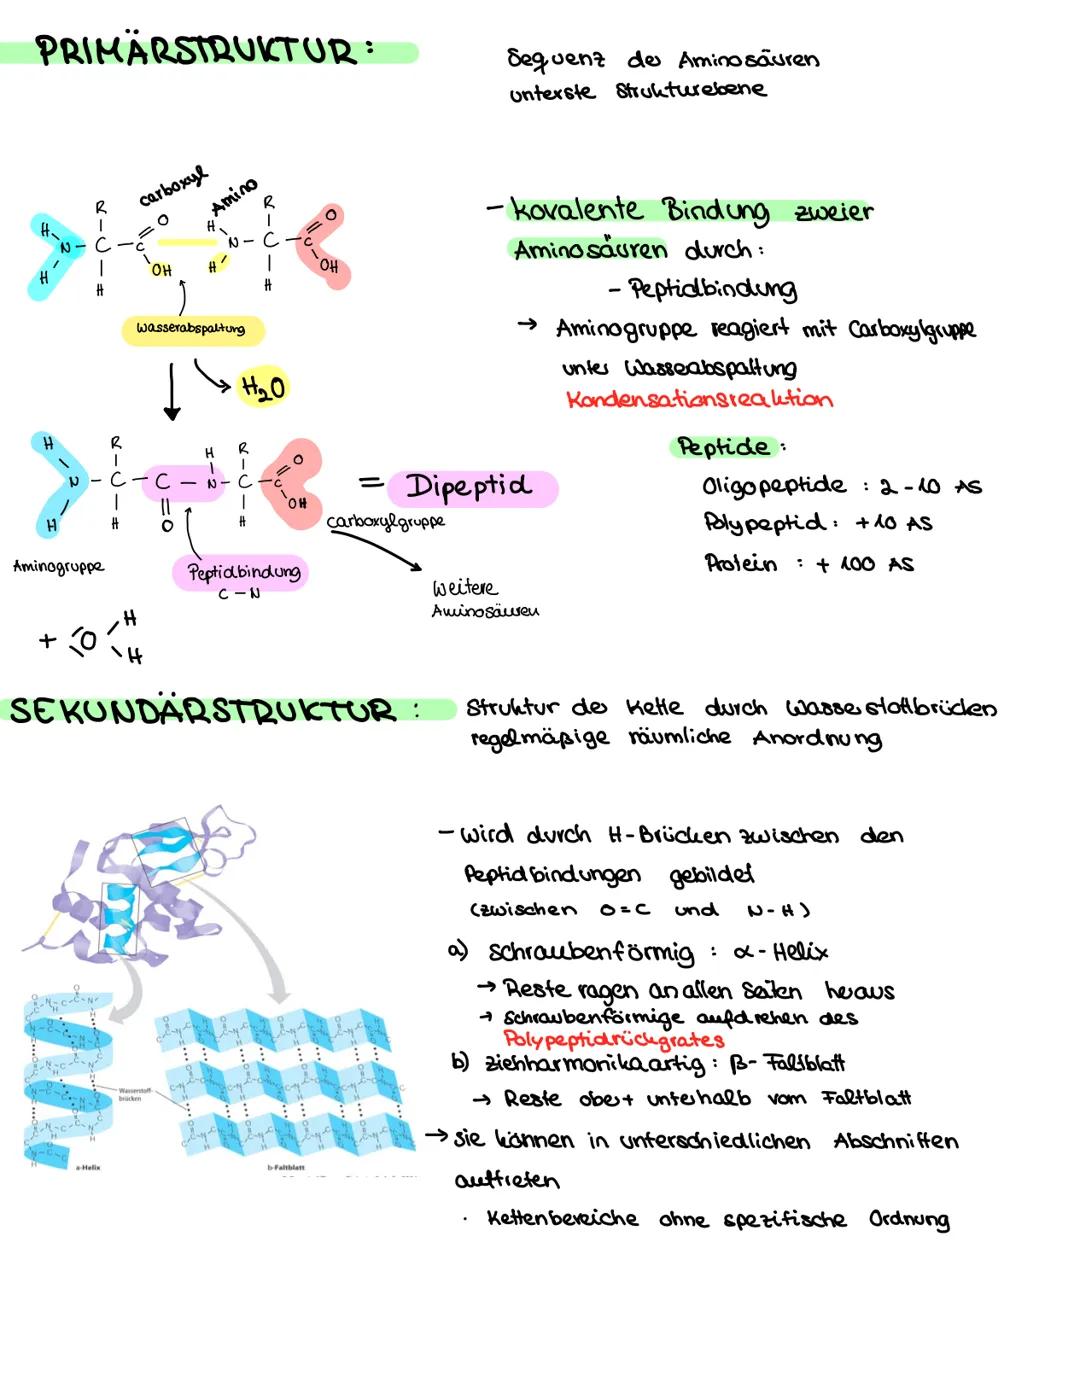 PRIMÄRSTRUKTUR:
Sequenz der Aminosäuren
unterste Strukturebene
carboxyl
Amino
R
R
H
N - C - C
O
OH
H
H
H
H
N - C - C
O
OH
H
H
Wasserabspaltung
H₂O
- kovalente Bindung zweier
Aminosäuren durch:
- Peptidbindung
→ Aminogruppe reagiert mit Carboxylgruppe
unter Wasseabspaltung
Kondensationsreaktion
H
R
H
R
O
N - C - C - N - C - C
OH
H
H
O
H
= Dipeptid
Carboxylgruppe
Aminogruppe
Peptidbindung
C - N
Weitere
Aminosäuren
+ O
H
H
Peptide:
Oligopeptide : 2 - 10 AS
Polypeptid : +10 AS
Protein : + 100 AS
SEKUNDÄRSTRUKTUR :
Struktur der Kette durch Wasserstoffbrücken
regelmäßige räumliche Anordnung
- wird durch H-Brücken zwischen den
Peptidbindungen gebildet
(zwischen O=C und N-H)
a) schraubenförmig : α - Helix
→ Reste ragen an allen Seiten heraus
→ schraubenförmige aufdrehen des
Polypeptidrückgrates
b) ziehharmonikaartig : β - Faltblatt
→ Reste ober + unterhalb vom Faltblatt
→ sie können in unterschiedlichen Abschnitten
auftreten
· Kettenbereiche ohne spezifische Ordnung
Wasserstoff-
brücken
a-Helix
b-Faltblatt